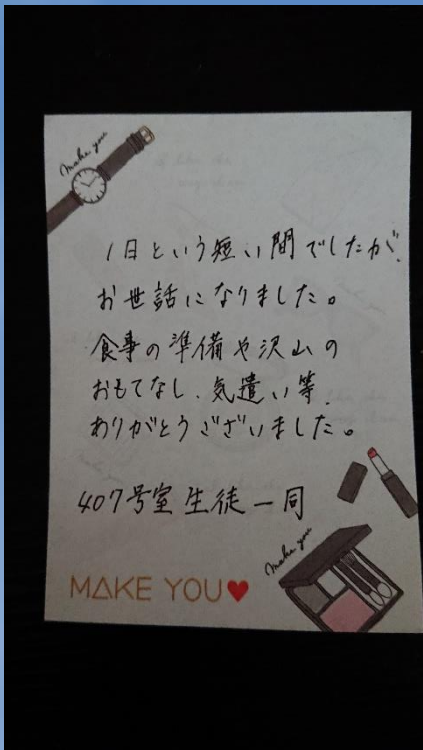 make you
1日という短い間でしたが、
お世話になりました。
食事の準備や沢山の
おもてなし、気遣い等、
ありがとうございました。
407号室 生徒一同
make you
MAKE YOU♥